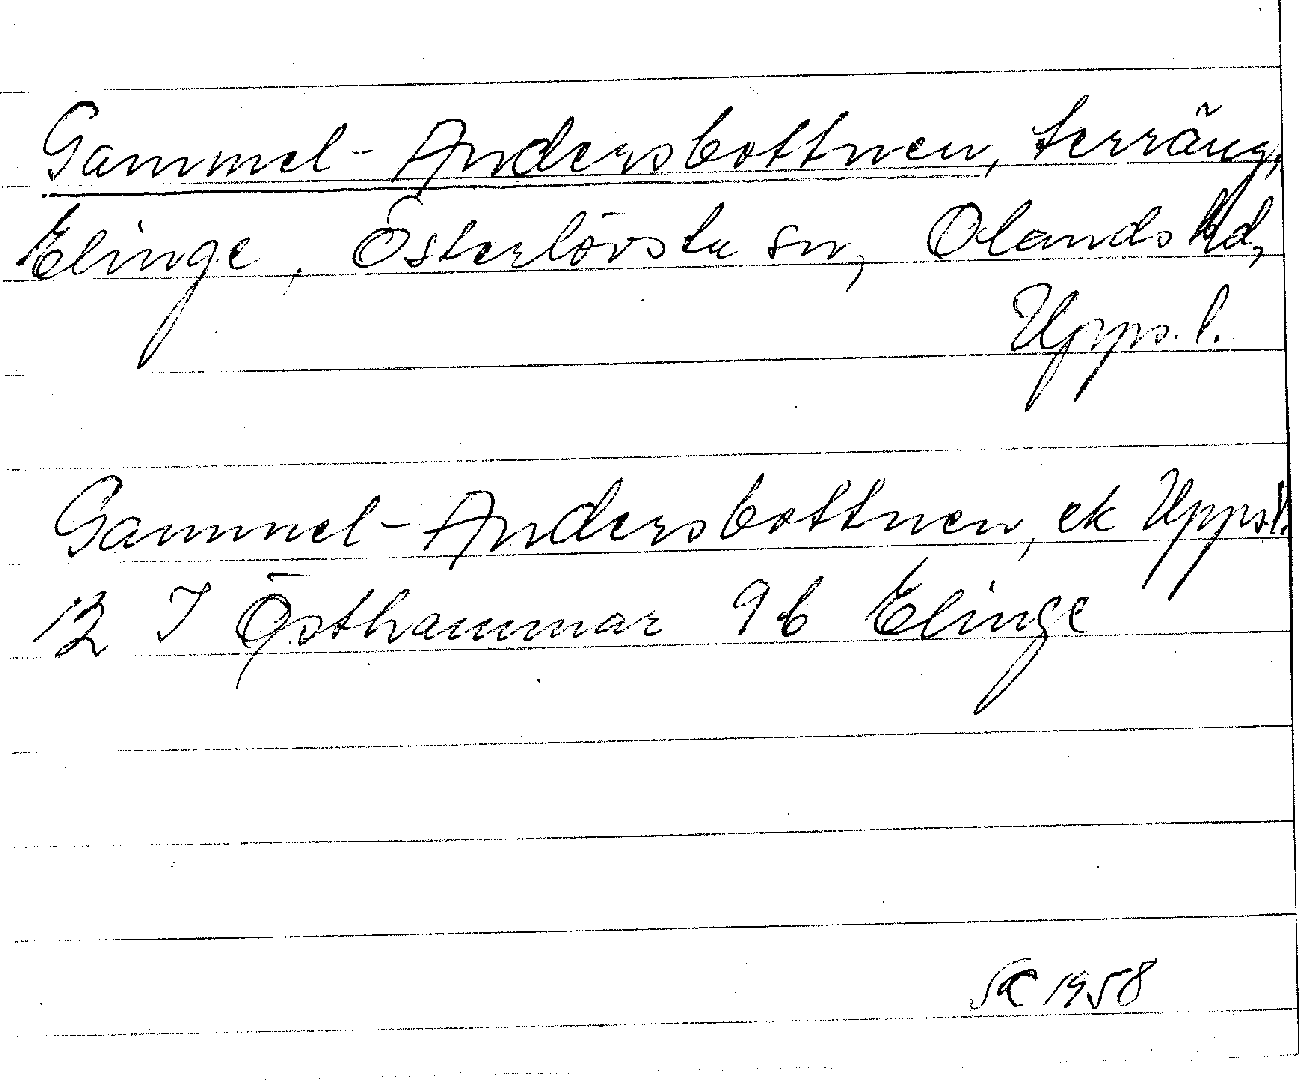 Gammel-Andersbottnen, terräng,
Elinge, Österlövsta sn, Olands hd,
Upps. l.
Gammel-Andersbottnen, ek Upps l.
12 I Östhammar 9b Elinge
1958